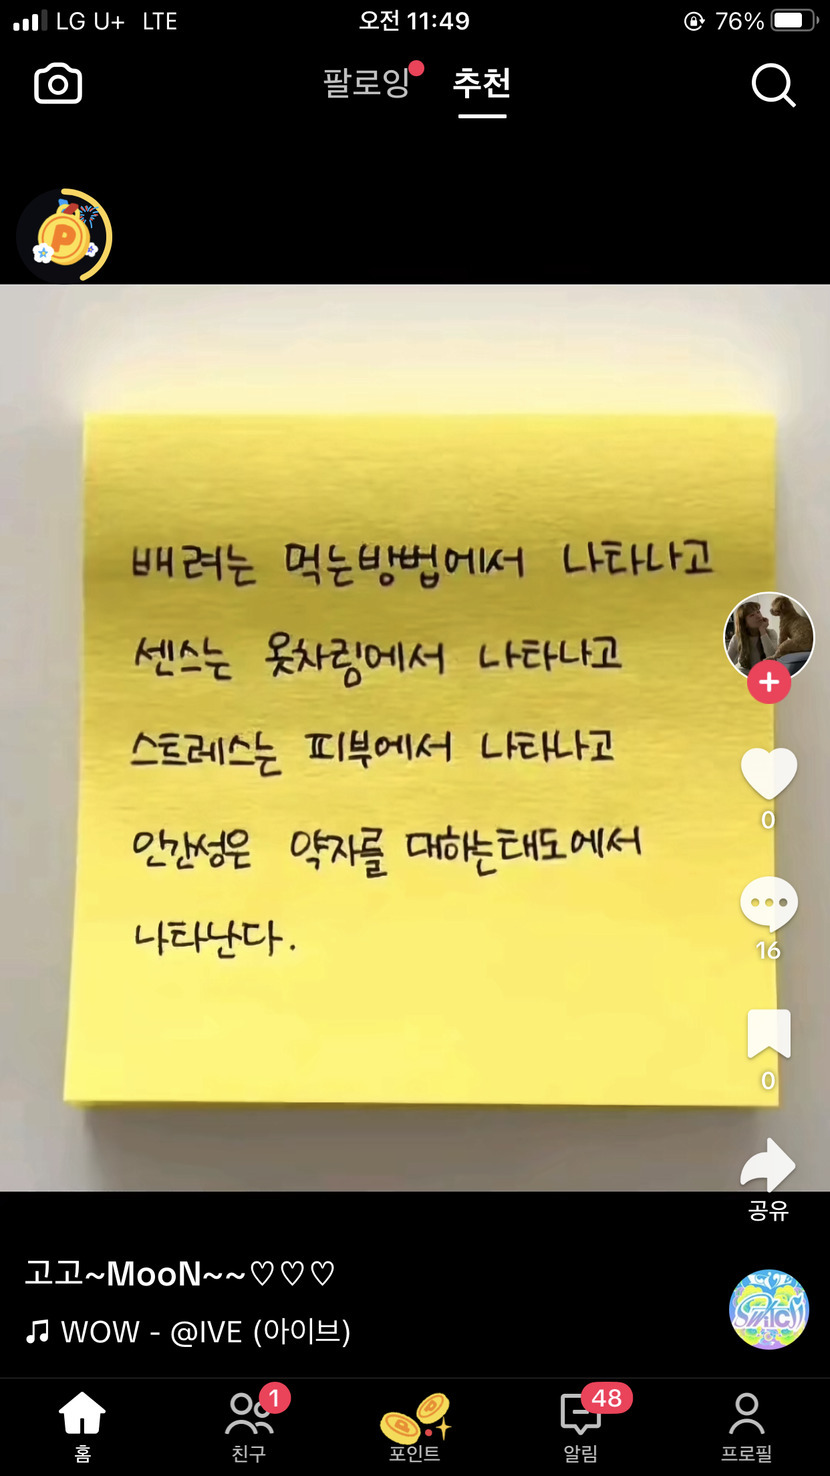 LG U+ LTE 오전 11:49 76%
팔로잉 추천
P
배려는 먹는방법에서 나타나고
센스는 옷차림에서 나타나고
스트레스는 피부에서 나타나고
인간성은 약자를 대하는태도에서
나타난다.
0
16
0
공유
고고~MooN~~♡♡♡
WOW - @IVE (아이브)
1 48
홈 친구 포인트 알림 프로필